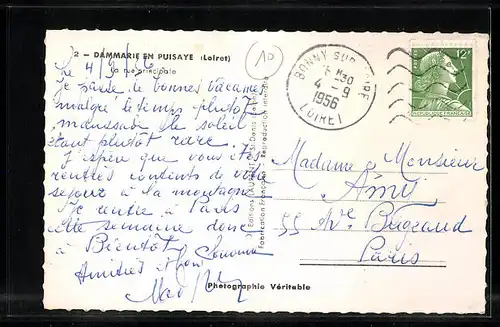 2 - DAMMARIE EN PUISAYE (Loiret)
La rue principale
10
Le 4/9/56
Je passe de bonnes vacances
malgré le temps plutôt
maussade le soleil
étant plutôt rare.
J'espère que vous êtes
rentrés contents de votre
séjour à la montagne
Je rentre à Paris
cette semaine donc
à Bientôt
Amitiés
BONNY SUR LOIRE
4 - 9
1956
LOIRET
12F
REPUBLIQUE FRANÇAISE
Editions
Fabrication Française - Reproduction interdite
Madame Monsieur
Amy
55 Ave Bugeaud
Paris
Photographie Véritable